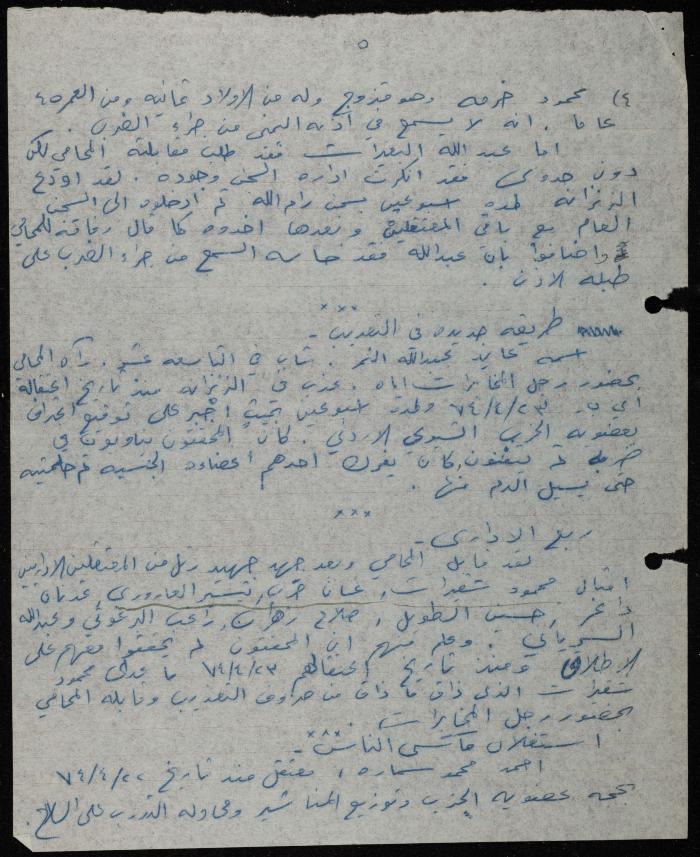 ٥
٤) محمود خرمه وهو متزوج وله من الاولاد ثمانيه ومن العمر ٤٥
عاما . انه لا يسمع في أذنه اليمنى من جراء الضرب .
اما عبد الله البعدات فقد طلب مقابلته المحامي لكن
دون جدوى فقد انكرت اداره السجن وجوده . لقد اودع
الزنزانه لمده اسبوعين بسجن رام الله ثم ادخلوه الى السجن
العام مع باقي المعتقلين وبعدها اخذوه كما قال رفاقه للمحامي
واضافوا بان عبدالله فقد حاسه السمع من جراء الضرب على
طبله الاذن .
×××
طريقه جديده في التعذيب -
اسمه عايد عبدالله النمر . شاب في التاسعه عشر . رآه المحامي
بحضور رجل المخابرات اياه . عذب في الزنزانه منذ تاريخ اعتقاله
اي في ٧٤/٤/٢٣ ولمدة اسبوعين بحيث اجبر على توقيع اعتراف
بعضويه الحزب الشيوعي الاردني . كان المحققون يتناوبون في
ضربه ثم كان يفرك احدهم اعضاءه الجنسيه ثم حلمتيه
حتى يسيل الدم منها .
×××
ربع الاداري -
لقد قابل المحامي وبعد جهد جهيد رتل من المعتقلين الاداريين
امثال محمود شقيرات , غسان حرب , تيسير العاروري , عدنان
داغر , حسين الطويل , صلاح زهران , راغب البرغوثي وعبدالله
السرياني . وعلم منهم ان المحققون لم يحققوا معهم على
الاطلاق ومنذ تاريخ اعتقالهم ٧٤/٤/٢٣ ما عدى محمود
شقيرات الذي ذاق ما ذاق من صروف التعذيب وقابله المحامي
بحضور رجل المخابرات .
×××
استغلال مآسي الناس -
احمد محمد سماره , معتقل منذ تاريخ ٧٤/٤/٢٢
بحجه عضويه الحزب وتوزيع المناشير ومحاوله التدرب على السلاح .